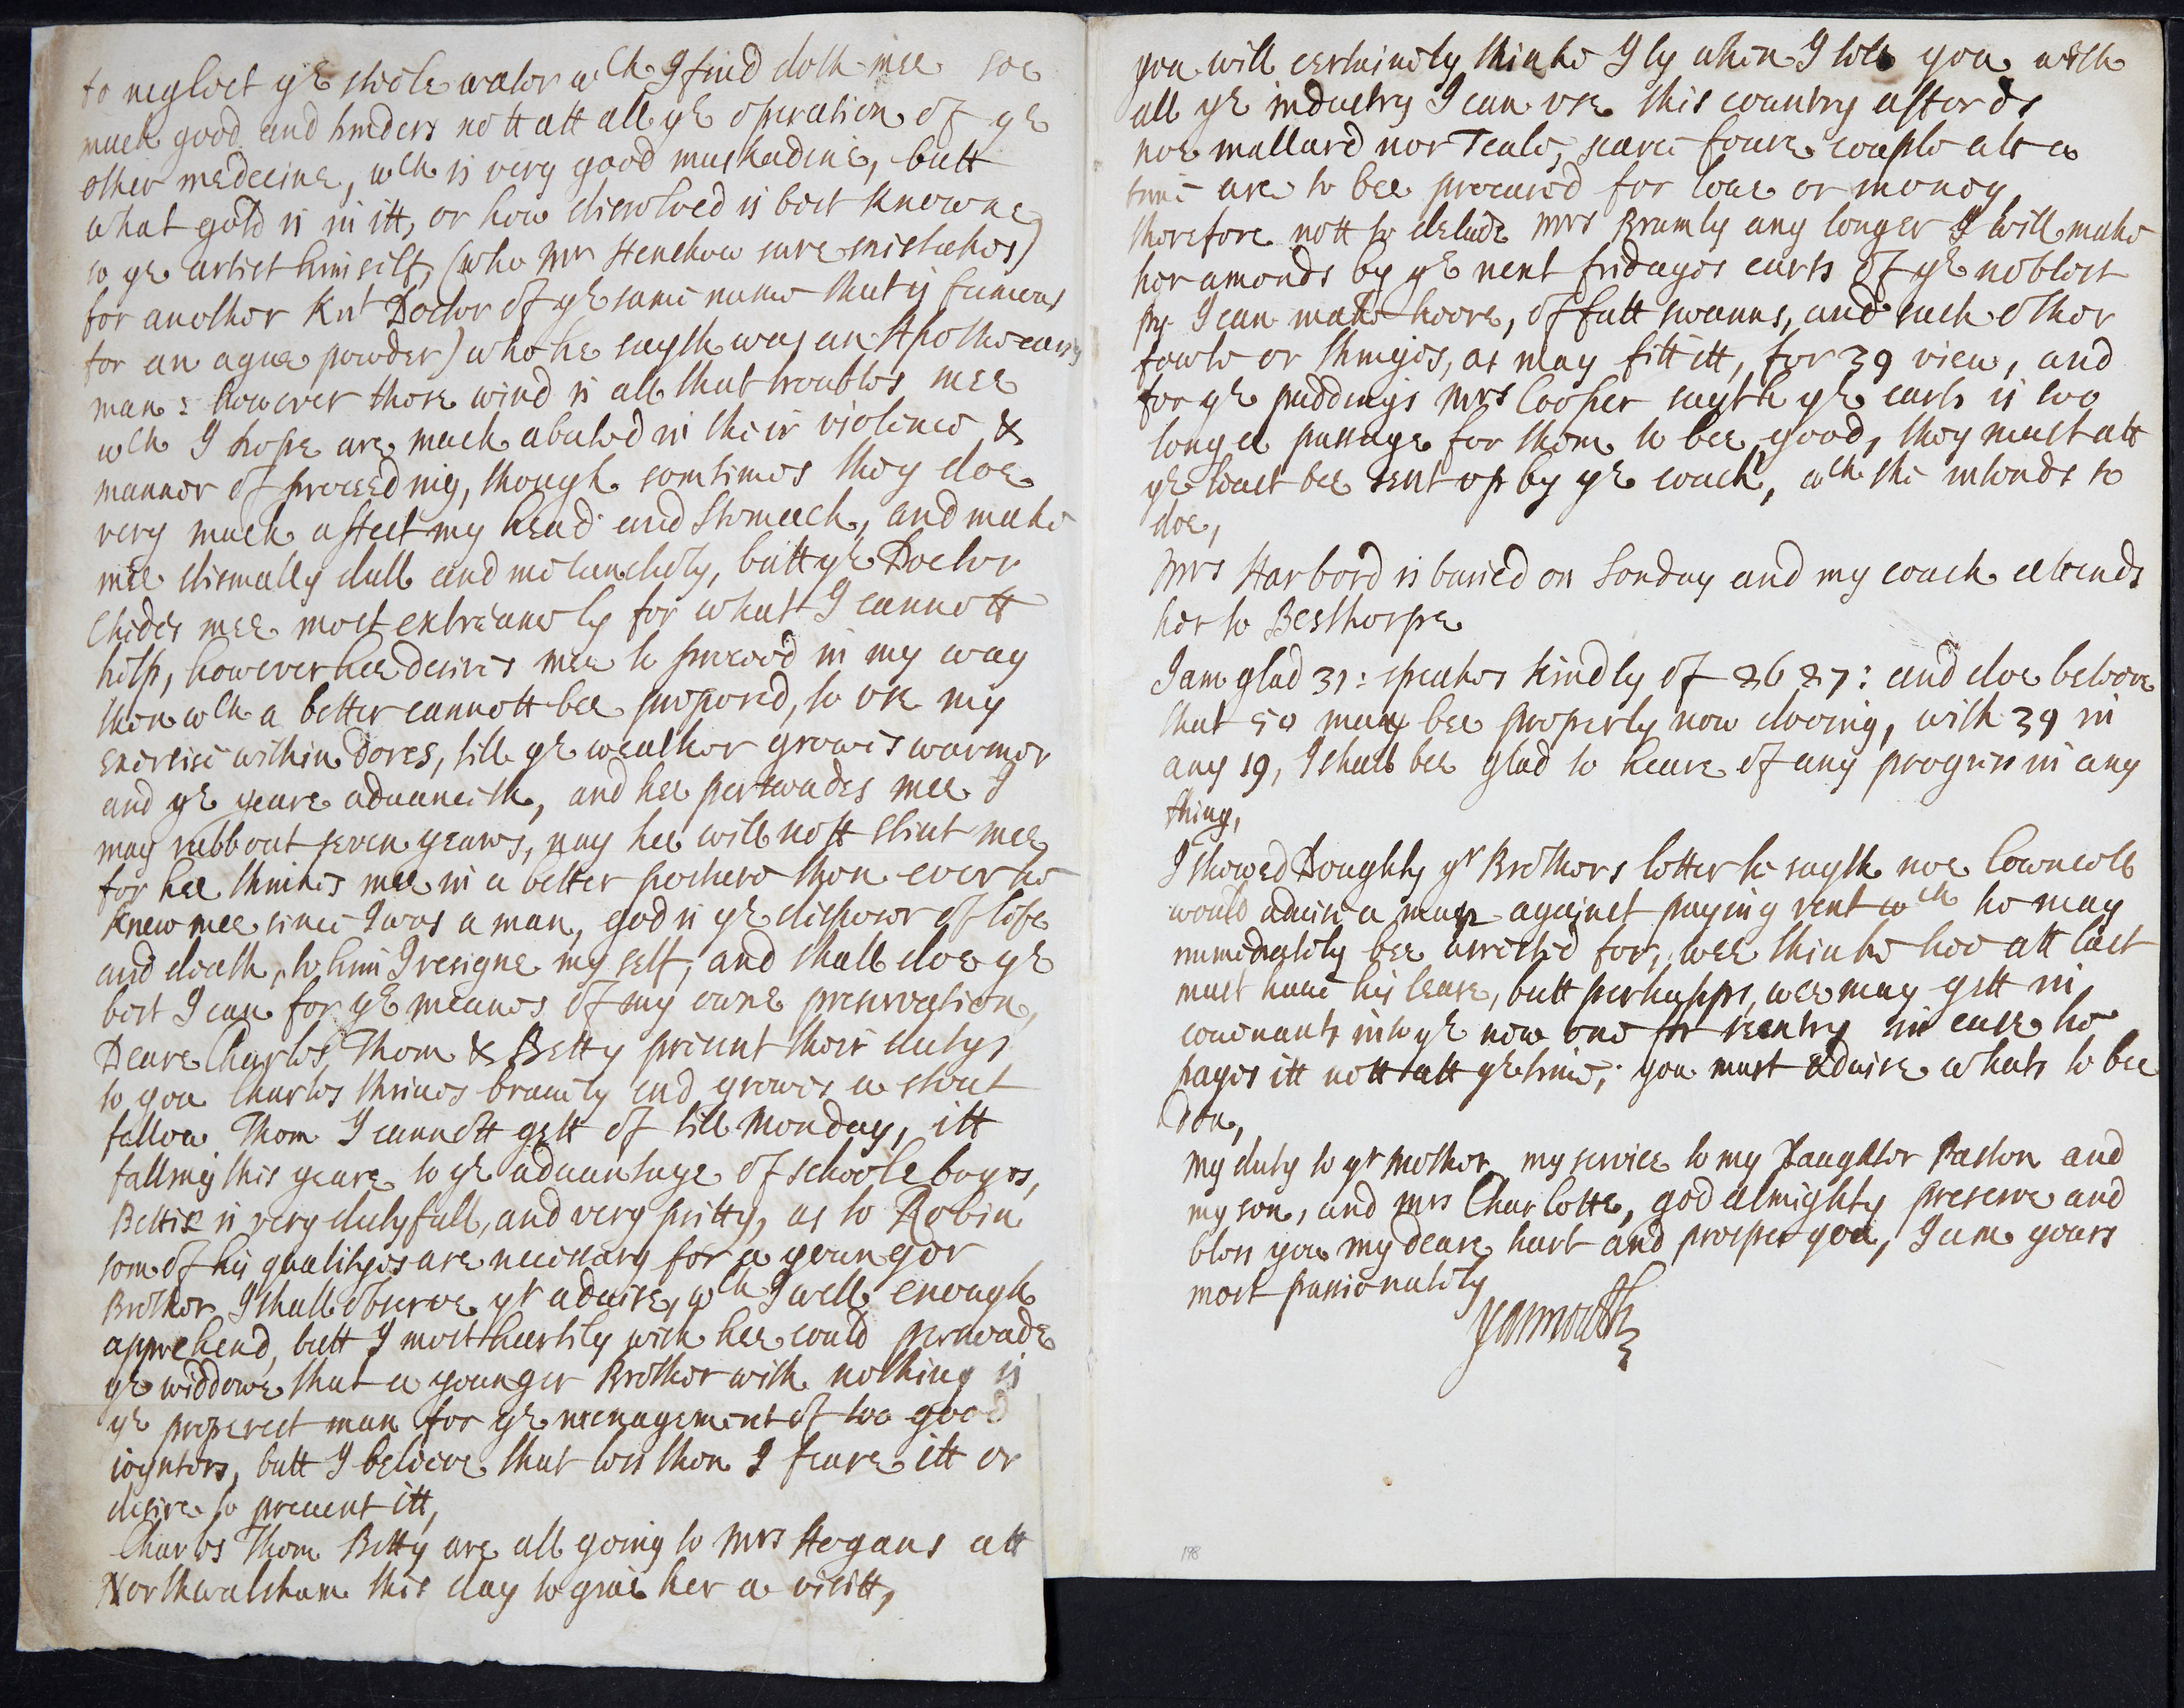 to neglect ye steele water wch I find doth mee soe
much good and hinders nott att all ye operation of ye
other medecine, wch is very good muskadine, butt
what gold is in itt, or how disolved is best knowne
to ye artist himself, (who Mr Henshaw sure mistakes
for another Knt Doctor of ye same name that is famous
for an ague powder) who he sayth was an Apothecarys
man: however those wind is all that troubles mee
wch I hope are much abated in their violence &
manner of proceeding, though somtimes they doe
very much affect my head and stomach, and make
mee dismally dull and melancholy, butt ye Doctor
chides mee most extreamely for what I cannott
help, however hee desires mee to proceed in my way
then wch a better cannott bee proposed, to use my
exercise within dores, till ye weather growes warmer
and ye yeare advanceth, and hee perswades mee I
may rubb out seven yeares, nay hee will nott stint mee
for hee thinkes mee in a better posture then ever he
knew mee since I was a man, god is ye disposer of life
and death, to him I resigne my self, and shall doe ye
best I can for ye meanes of my owne preservation,
Deare Charles Thom & Betty present their dutys
to you Charles thrives bravely and growes a stout
fellow Thom I cannott gett of till Monday, itt
falling this yeare to ye aduantage of schoole boyes,
Bettie is very dutyfull, and very pritty, as to Robin
som of his qualityes are necessary for a younger
Brother, I shall observe yr aduise, wch I well enough
apprehend, butt I most heartily wish hee could perswade
ye widdowe that a younger Brother with nothing is
ye properest man for ye menagement of too good
ioynters, butt I beleeve that less then I feare itt or
desire to preuent itt,
Charles Thom Betty are all going to Mrs Hogans att
Northwalsham this day to giue her a visitt,
you will certainely thinke I ly when I tell you with
all ye industry I can use this country affords
noe mallard nor Teale, scarce foure couple att a
time are to bee procured for loue or money
therefore nott to delude Mrs Bramly any longer I will make
her amends by ye next fridayes carts of ye noblest
py I can make heere, of fatt swanns, and such other
fowle or thinges, as may fitt itt, for 39 view, and
for ye puddings Mrs Cooper sayth ye carts is too
long a passage for them to bee good, they must att
ye least bee sent up by ye coach, wch she intends to
doe,
Mrs Harbord is buried on Sonday and my coach attends
her to Besthorpe
I am glad 31: speakes kindly of 26 27: and doe beleeve
that 50 may bee properly now dooing, with 39 in
any 19, I shall bee glad to heare of any progress in any
thing,
I shewed Doughty yr Brothers letter he sayth noe Councell
would aduise a man against paying rent wch he may
immediately bee arrested for, wee thinke hee att last
must haue his lease, butt perhapps, wee may gett in
couenants into ye new one for reentry in case he
payes itt nott att ye time; you must aduise whats to bee
don,
my duty to yr Mother my service to my Daughter Paston and
my son, and Mrs Charlotte, god almighty preserve and
bless you my deare hart and prosper you, I am yours
most passionately
Yarmouth
198